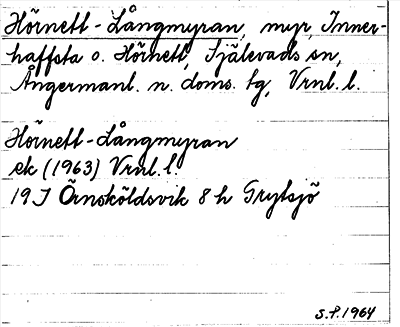 Hörnett-Långmyran, myr, Inner-
haffsta o. Hörnett, Själevads sn,
Ångermanl. n. doms. tg, Vrnl. l.
Hörnett-Långmyran
ek (1963) Vrnl. l.
19 J Örnsköldsvik 8 h Grytsjö
S.P. 1964